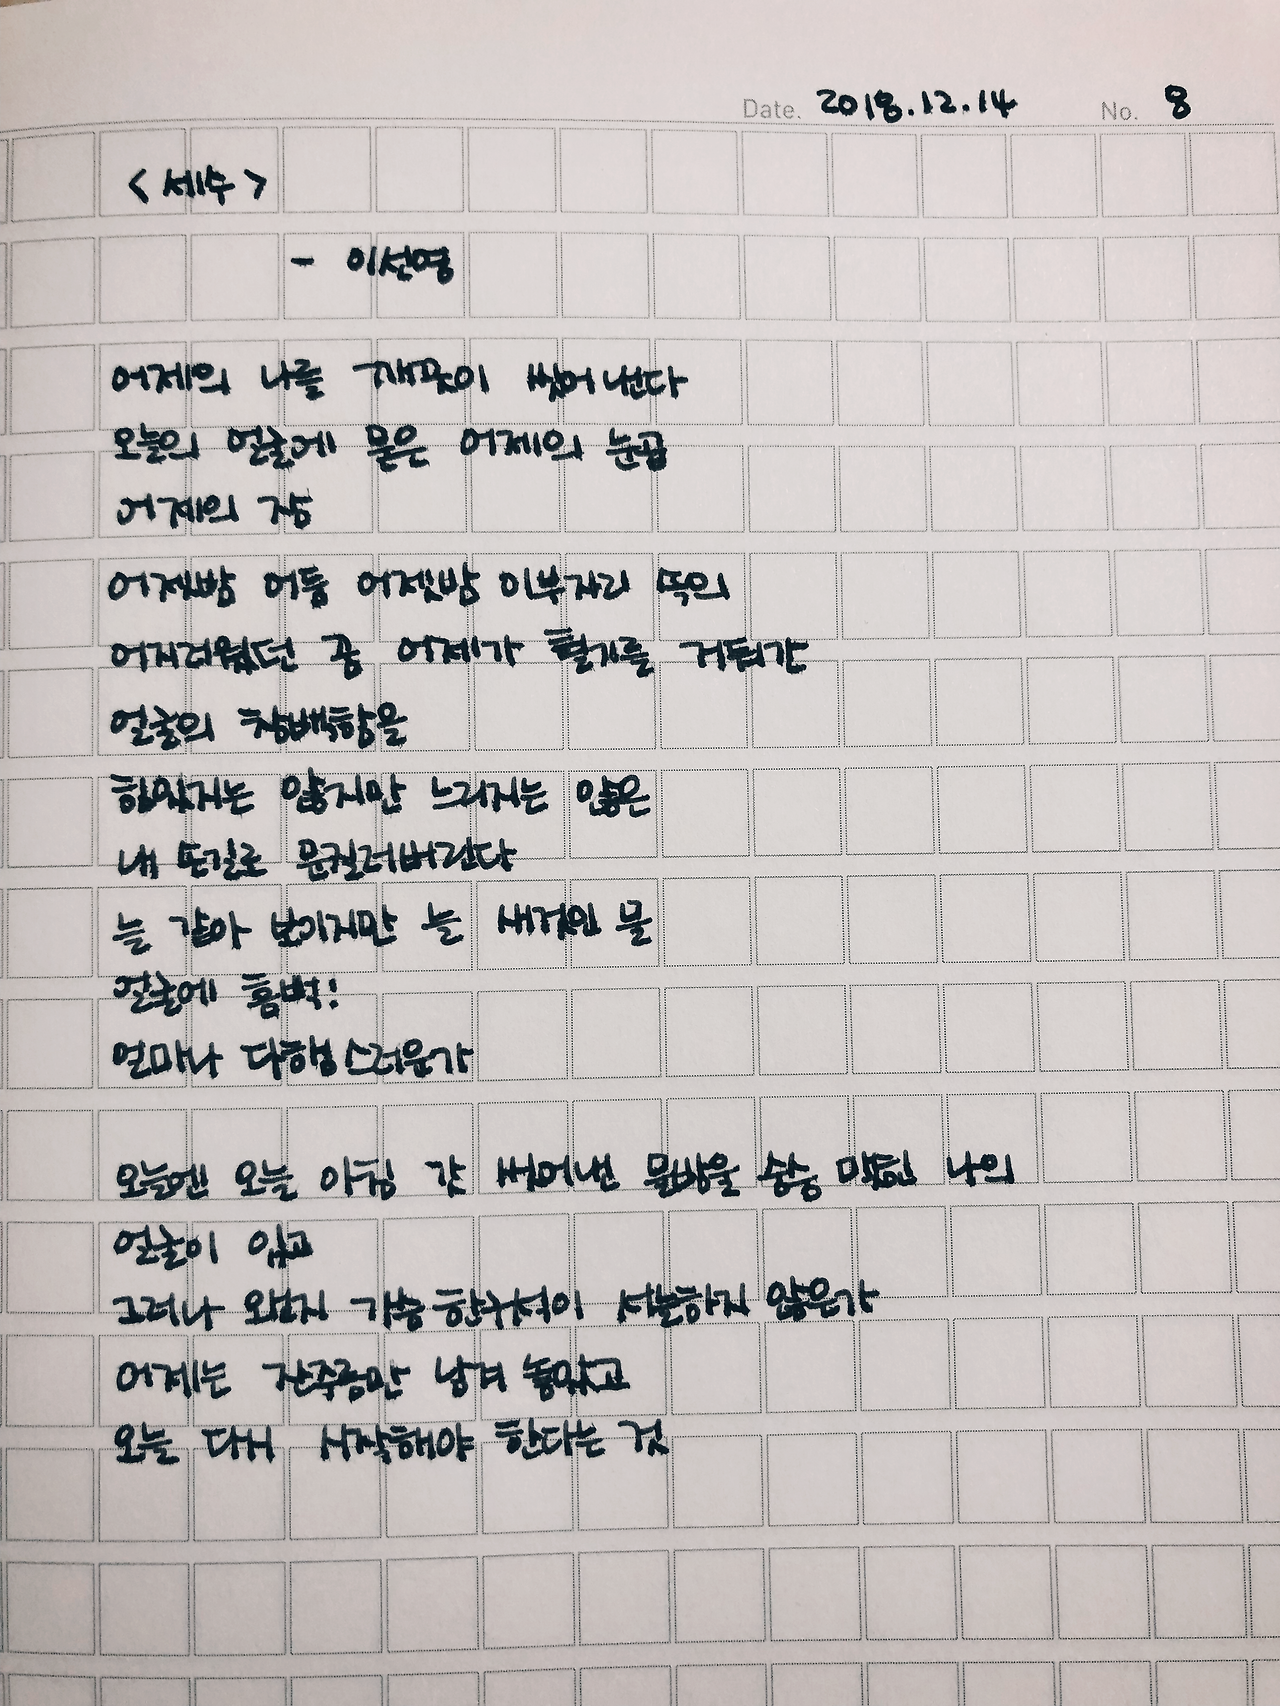 Date. 2018.12.14 No. 8
<세수>
- 이선영
어제의 나를 깨끗이 씻어 낸다
오늘의 얼굴에 묻은 어제의 눈곱
어제의 잠
어젯밤 어둠 어젯밤 이부자리 속의
어지러웠던 꿈 어제가 혈기를 거둬간
얼굴의 창백함을
힘있지는 않지만 느리지는 않은
내 손길로 문질러버린다
늘 같아 보이지만 늘 새것인 물
얼굴에 흠뻑!
얼마나 다행스러운가
오늘엔 오늘 아침 갓 씻어낸 물방울 숭숭 맺힌 나의
얼굴이 있고
그러나 왠지 가슴 한구석이 서늘하지 않은가
어제는 잔주름만 남겨 놓았고
오늘 다시 시작해야 한다는 것